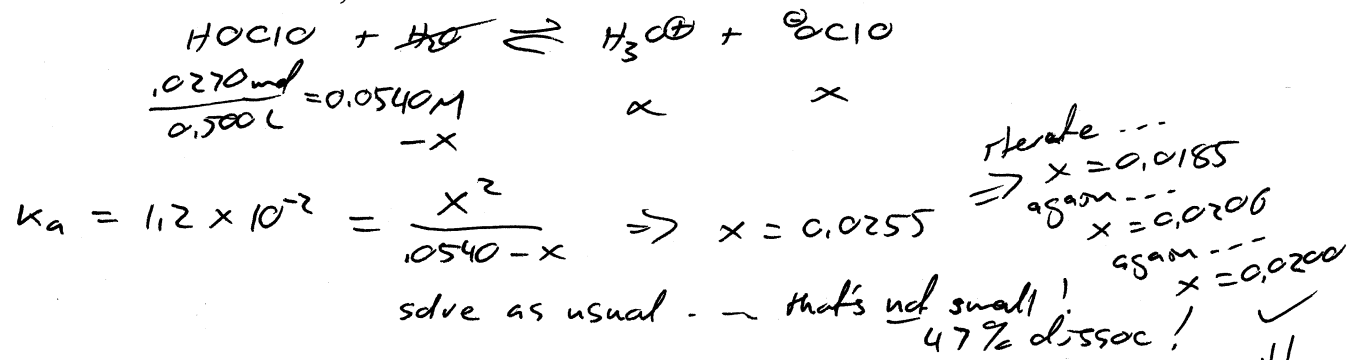 HOClO + H₂O ⇌ H₃O⊕ + ⊖OClO
.0270 mol / 0.500 L = 0.0540 M - x
x
x
Ka = 1.2 × 10⁻² = x² / .0540 - x ⇒ x = 0.0255
⇒ iterate ...
x = 0.0185
again ...
x = 0.0206
again ...
x = 0.0200 ✓
solve as usual . . that's not small!
47% dissoc!